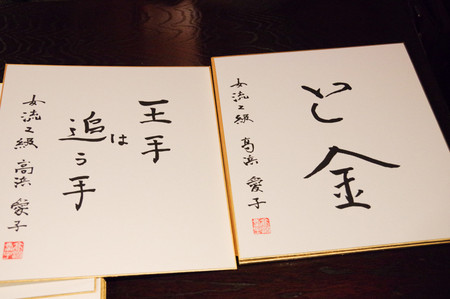 王手
は
追う手
女流2級 高浜愛子
と金
女流2級 高浜愛子